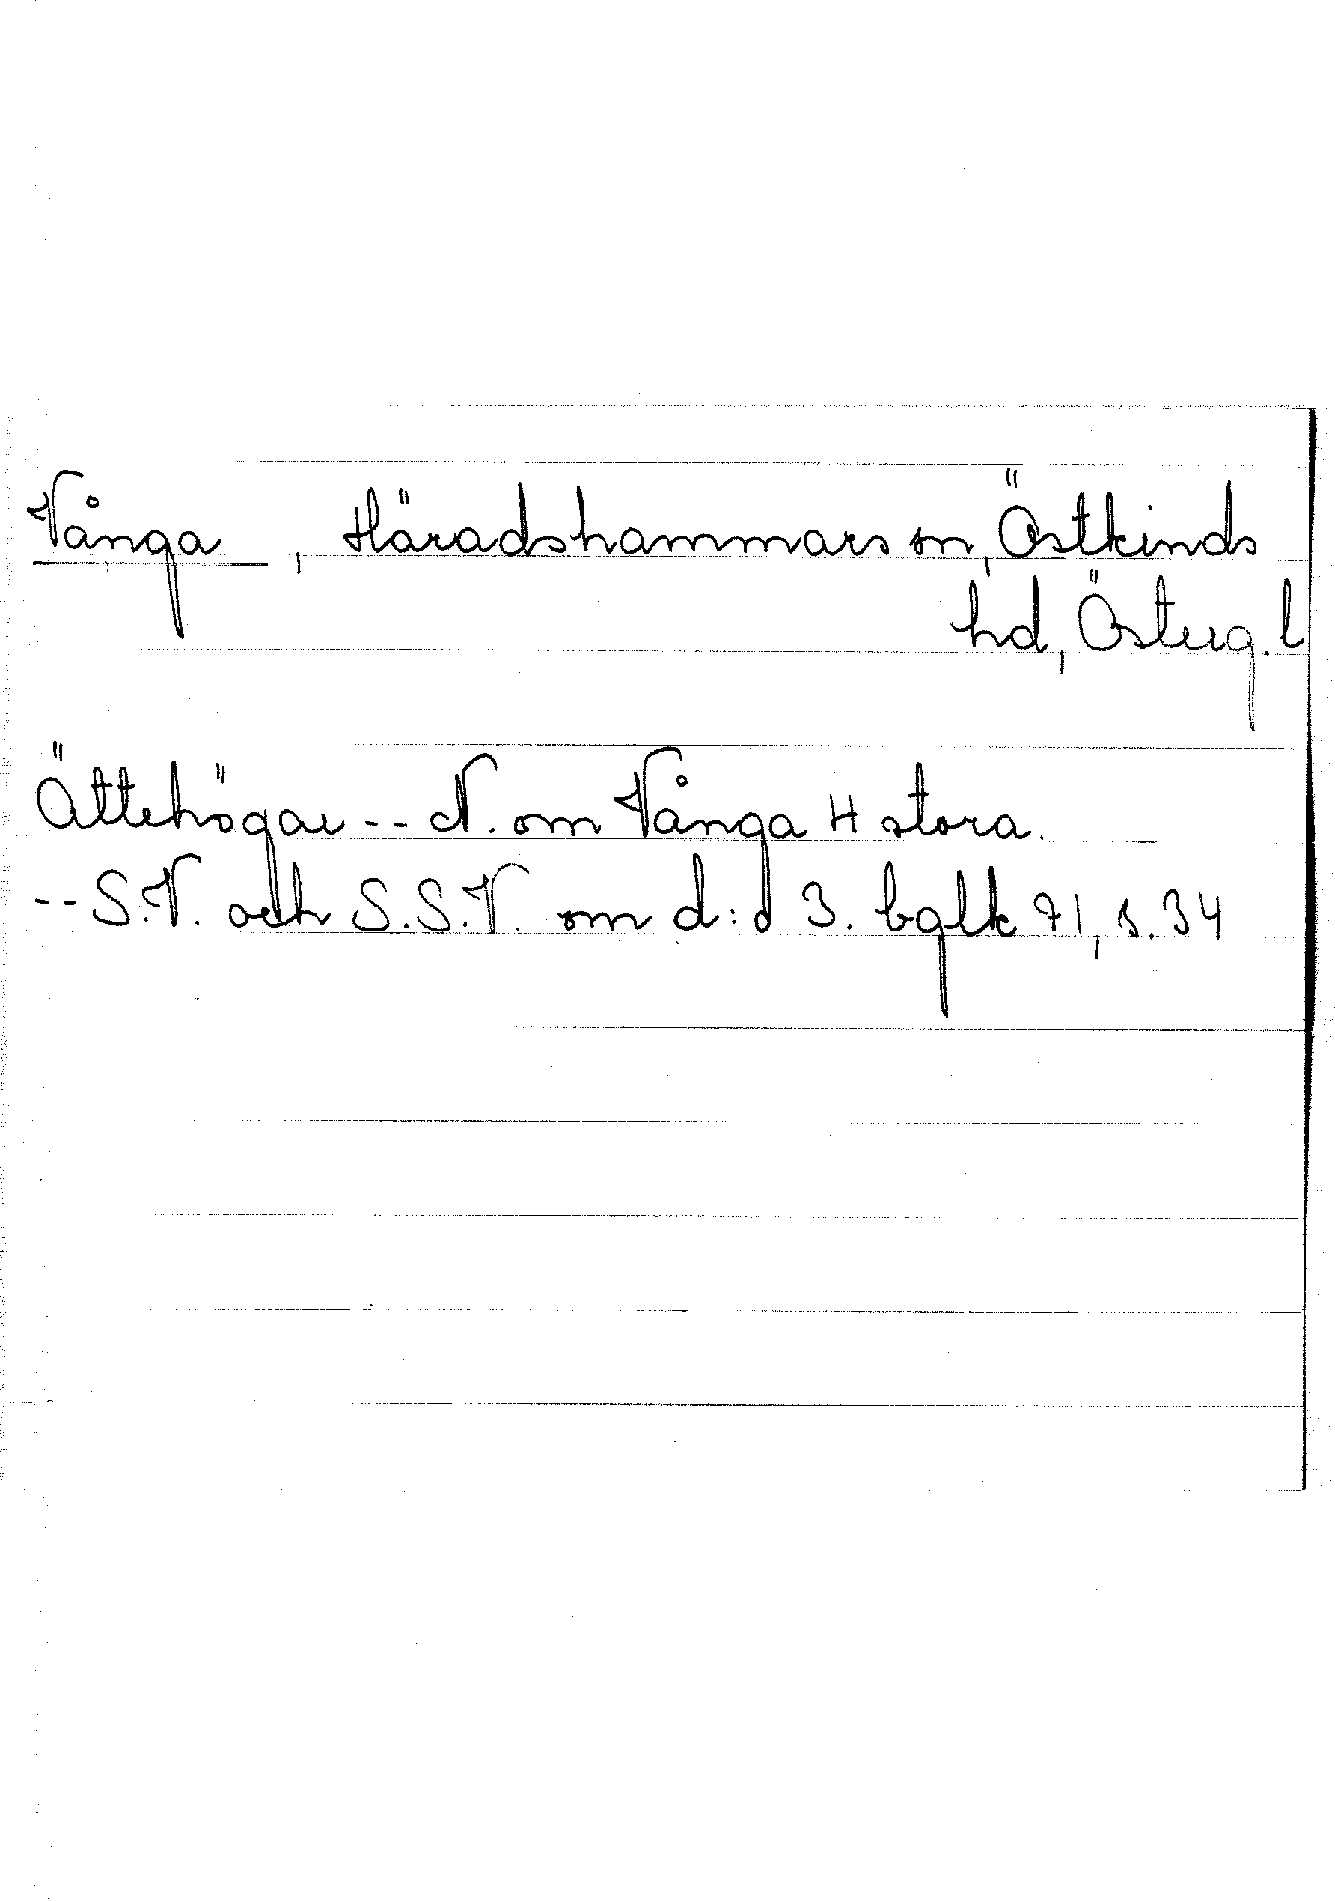 Vånga , Häradshammars sn, Östkinds
hd, Österg. l
Ättehögar -- N. om Vånga 4 stora.
-- S.V. och S.S.V. om d:o 3. bglk 71, s. 34